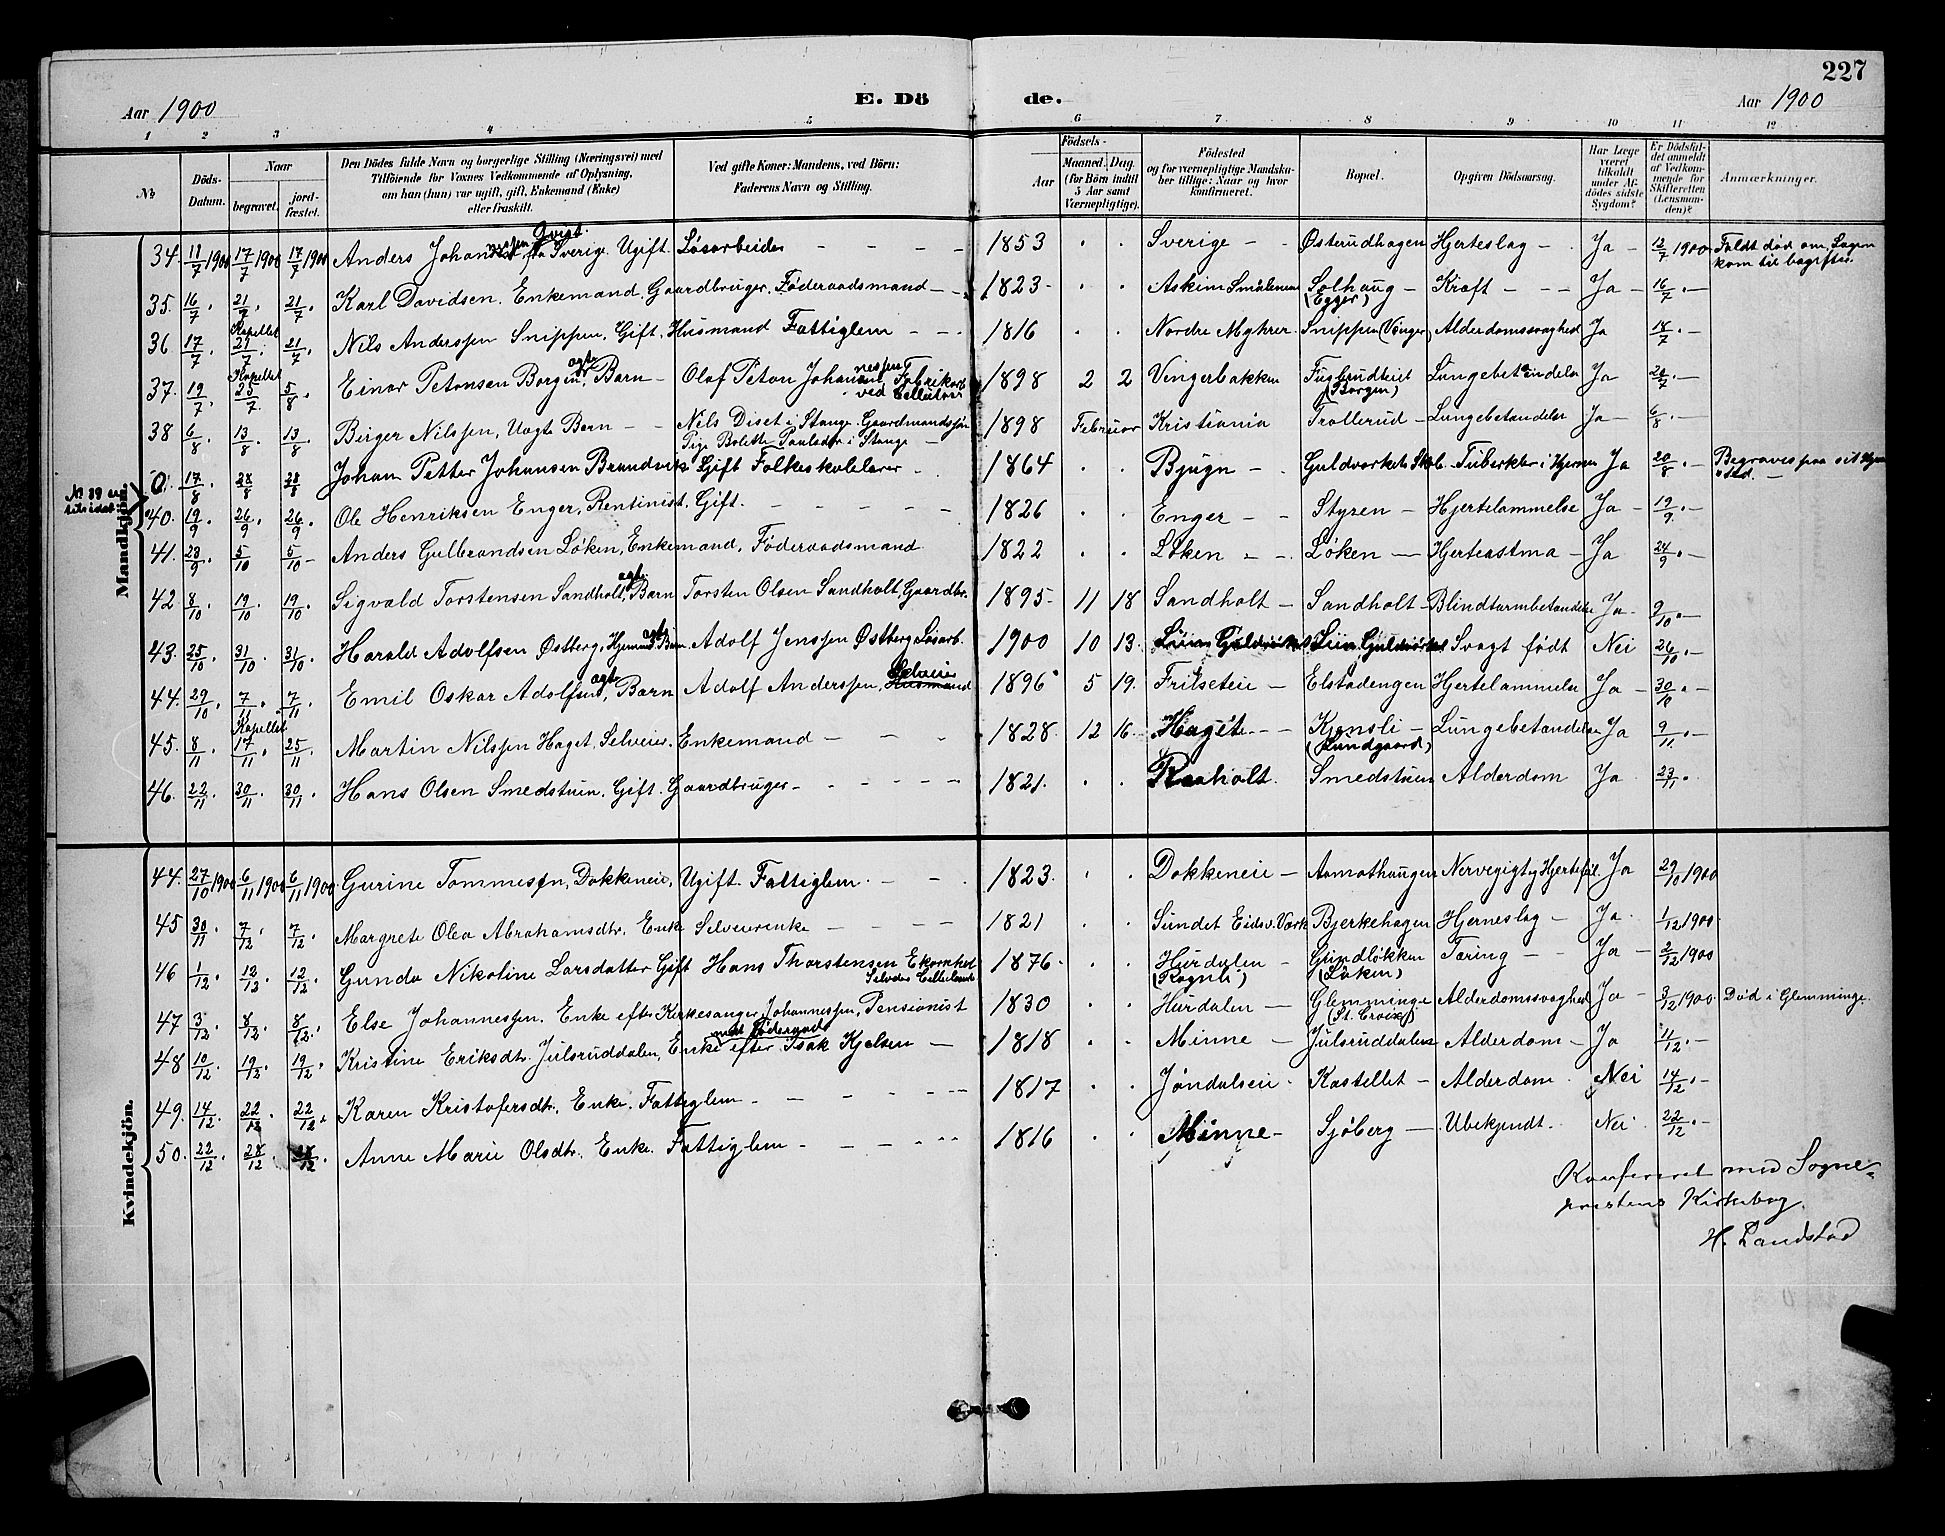 227
Aar 1900 E. Dö de. Aar 1900
1 2 3 4 5 6 7 8 9 10 11 12
No. Döds-Datum. Naar begravet. jordfæstet. Den Dödes fulde Navn og borgerlige Stilling (Næringsvei) med Tilföiende for Voxnes Vedkommende af Oplysning, om han (hun) var ugift, gift, Enkemand (Enke) eller fraskilt. Ved gifte Koner: Mandens, ved Börn: Faderens Navn og Stilling. Födsels- Aar Maaned. Dag. (for Börn indtil 5 Aar samt Værnepligtige). Födested og for værnepligtige Mandskaber tillige: Naar og hvor konfirmeret. Bopæl. Opgiven Dödsaarsag. Har Læge været tilkaldt under Afdödes sidste Sygdom? Er Dödsfaldet anmeldt af Vedkommende for Skifteretten (Lensmanden)? Anmærkninger.
Mandkjön.
34. 11/7 1900 17/7 1900 17/7 1900 Anders Johannessen Qvist fra Sverig. Ugift. Løsarbeider - - - - 1853 . . Sverige - Østerudhagen Hjerteslag - . Ja - 12/7 1900 Faldt død om, Lægen kom til bagefter.
35. 16/7 . 21/7 . 21/7 . Karl Davidsen. Enkemand. Gaardbruger. Føderaadsmand - - 1823 - . . Askim Smålenene Solhaug (Egger) - Kræft - - - Ja - 16/7 . -
36. 17/7 Kapellet 21/7 . 21/7 . Nils Anderssen Snippen, Gift. Husmand Fattiglem - - 1816 . . Nordre Myhrer. Snippen (Vinger) Alderdomssvaghed Ja 18/7 . -
37. 19/7 . Kapellet 25/7 . 5/8 . Einar Petonsen Borgen, ægte Barn - Olaf Peton Johannessen Fabrikarb ved Cellulosen 1898 2 2 Vingerbakken Fuglerudteiet (Borgen) Lungebetændelse Ja 20/7 . -
38 6/8 . 13/8 . 13/8 . Birger Nilssen, Uægte Barn - - Nils Diset i Stange. Gaardmandssøn Pige Bolette Paulsdtr i Stange - 1898 Februar Kristiania Trollerud - Lungebetændelse Ja - 6/8 . -
No 39 er
0. 17/8 28/8 28/8 Johan Petter Johansen Brandvik Gift Folkeskolelærer - 1864 . . Bjugn - Guldværkets Skole. Tuberkler i Hjernen Ja 20/8 . - Begraves paa sit -
40. 19/9 . 26/9 . 26/9 . Ole Henriksen Enger, Rentinist, Gift. - - - - - 1826 . . Enger - - Styren - Hjertelammelse Ja - 19/9 . -
41. 23/9 . 5/10 5/10 - Anders Gulbrandsen Løken, Enkemand, Føderaadsmand 1822 . . Løken - - . Løken - Hjerteastma - Ja 24/9 . -
42 8/10 . 19/10 . 19/10 . Sigvald Torstensen Sandholt, ægte Barn Torsten Olsen Sandholt, Gaardbr. 1895 - 11 18 Sandholt - Sandholt - Blindtarmbetændelse Ja - 9/10 . -
43. 25/10 . 31/10 . 31/10 . Harald Adolfsen Østberg, ægte Barn Adolf Jenssen Østberg Løsarb. 1900 10 13. Svagt født Nei 26/10 . -
44. 29/10 . 7/11 . 7/11 . Emil Oskar Adolfsen, ægte Barn Adolf Anderssen, Selveier 1896 5 19. Frilseteie - Elstadengen Hjertelammelse Ja - 30/10 . -
45. 8/11 . Kapellet 17/11 . 25/11 . Martin Nilssen Haget, Selveier. Enkemand - - - 1828. 12 16. Haget - - Konsli (Lundgaard) - Lungebetændelse Ja 9/11 . -
46. 22/11 . 30/11 . 30/11 . Hans Olsen Smedstuen, Gift. Gaardbruger - - - - - 1821. . . Raaholt. Smedstuen Alderdom Ja 23/11 .
Kvindekjön.
44. 27/10 1900 6/11 1900 6/11 1900 Gurine Tommessen, Dokkeneie, Ugift. Fattiglem - - - 1823. . . Dokkeneie - Aamothaugen Nervegigt og Hjertefeil. Ja 29/10 1900
45 30/11 . 7/12 . 7/12 . Margrete Olea Abrahamsdtr. Enke Selveierenke - - - 1821 . . Sundet Eidsv. Værk Bjerkehagen Hjerneslag - Ja . 1/12 1900
46 1/12 . 12/12 . 12/12 . Gunda Nikoline Larsdatter Gift Hans Thorstensen Ekornhol 1876 - . . Hurdalen (Rognli) - Grindløkken (Løken) Tæring - - Ja - 2/12 1900
47 3/12 . 8/12 . 8/12 . Else Johannessen. Enke efter Kirkesanger Johannessen, Pensionist 1830 . . Hurdalen - Glemminge (St. Croix) Alderdomssvaghed Ja - 3/12 1900 Død i Glemminge.
48 10/12 . 19/12 . 19/12 . Kristine Eriksdtr. Julsruddalen, Enke efter Isak Kjelsen med Føderaad - 1818 . . Minne - Julsruddalen Alderdom - Ja 11/12 . -
49. 14/12 . 22/12 . 22/12 . Karen Kristofersdtr. Enke. Fattiglem - - - - - - 1817 . . Jøndalseie - Kastellet - Alderdom . Nei 14/12 . -
50. 22/12 . 28/12 . 28/12 . Anne Marie Olsdtr. Enke. Fattiglem - - - - - 1816 . . Minne - Sjøberg - Ubekjendt . Nei . 22/12 . -
Konfereret med Sogne-
prestens Kirkebog.
H. Landstad